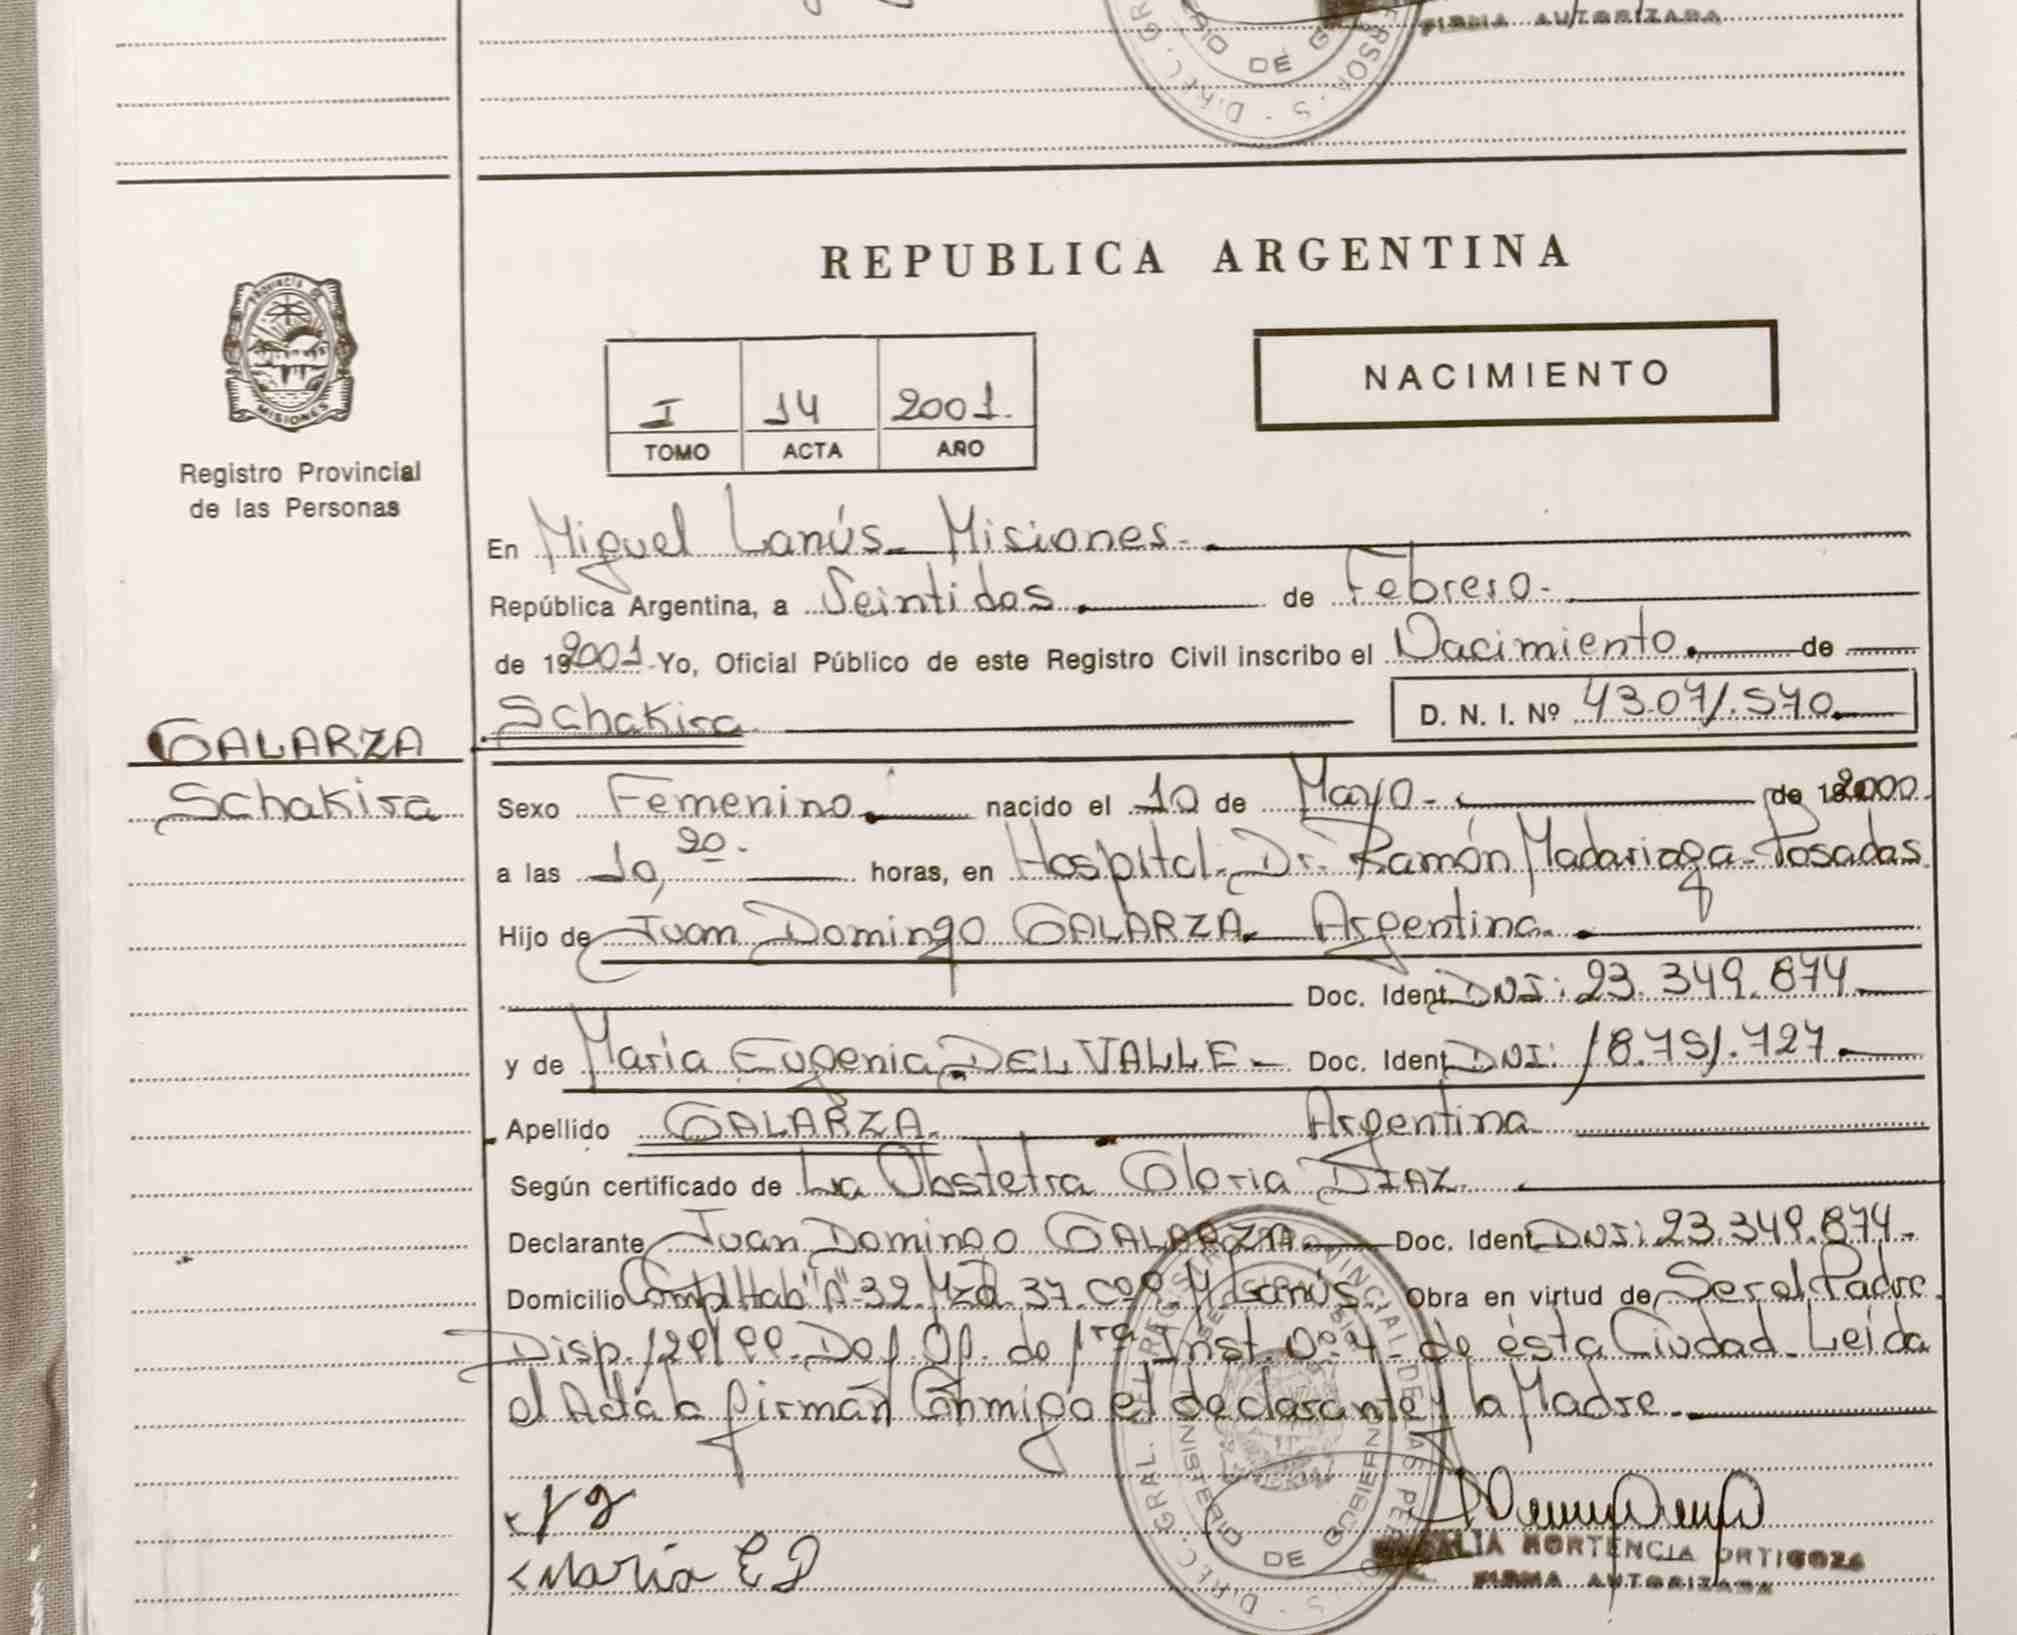 FIRMA AUTORIZADA
DE
REPUBLICA ARGENTINA
PROVINCIA DE
MISIONES
Registro Provincial
de las Personas
I 14 2001.
TOMO ACTA AÑO
NACIMIENTO
En Miguel Lanús - Misiones.
República Argentina, a Veintidos de Febrero.
de 192001 Yo, Oficial Público de este Registro Civil inscribo el Nacimiento. de
Schakira D. N. I. Nº 43.071.570.
GALARZA
Schakira
Sexo Femenino. nacido el 10 de Mayo - de 2000.
a las 10,20. horas, en Hospital. Dr. Ramón Madariaga - Posadas
Hijo de Juan Domingo GALARZA. Argentina.
Doc. Ident. DNI: 23.349.874.
y de María Eugenia DEL VALLE - Doc. Ident. DNI: 18.751.727.
Apellido GALARZA. Argentina
Según certificado de La Obstetra Gloria DIAZ
Declarante Juan Domingo GALARZA. Doc. Ident. DNI: 23.349.874.
Domicilio Compl Hab "A" 32. Mzd. 37. M Lanús. Obra en virtud de Ser el Padre.
Disp. Def. Of. de 1ra Inst. Nº 4 - de ésta Ciudad. Leída
el Acta la firmán Conmigo el declarante y la Madre.
María E D
DIREC. GRAL. DEL REGISTRO PROVINCIAL DE LAS PERSONAS
MINISTERIO DE GOBIERNO
HORTENCIA ORTIGOZA
FIRMA AUTORIZADA